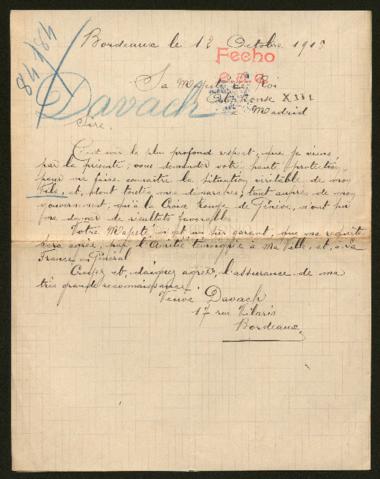 48/48
Bordeaux le 12 Octobre 191
Fecho
Sa Majesté le Roi
Alphonse XIII
Davach
Madrid
Sire,
C'est avec le plus profond respect, que je viens
par la présente, vous demander votre haute protection
pour me faire connaître la situation véritable de mon
Fils, et, dont toutes mes démarches, tant auprès de mon
gouvernement, qu'à la Croix Rouge de Genève, n'ont pu
me donner de résultats favorables
Votre Majesté, m'est un sûr garant, que ma requête
sera suivie, par l'Amitié témoignée à ma Ville, et, à la
France en Général
Croyez et, daignez agréer, l'assurance de ma
très grande reconnaissance.
Veuve Davach
17 rue
Bordeaux